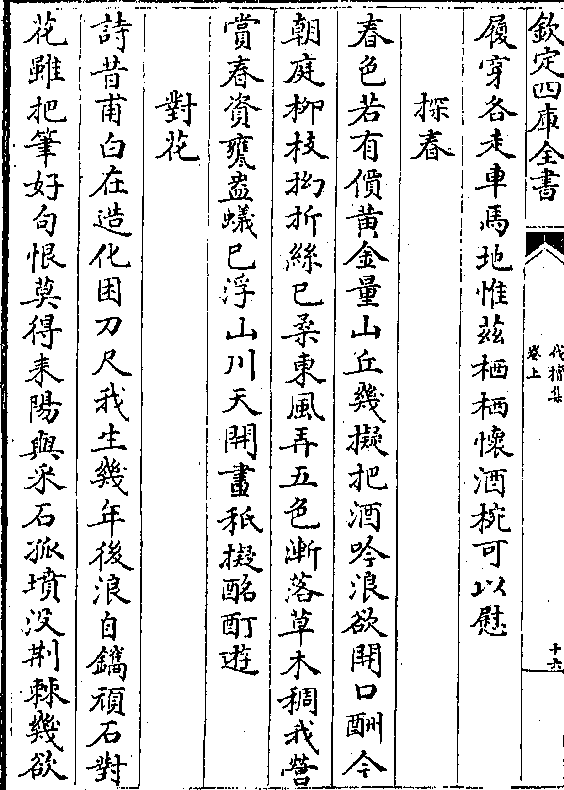 欽定四庫全書
伐檀集
卷上
十六
履穿各走車馬地惟兹栖栖懷酒椀可以慰
探春
春色若有價黄金量山丘幾擬把酒吟浪欲開口酬今
朝庭柳枝拗折絲已柔東風弄五色漸落草木稠我嘗
賞春資甕盎蟻已浮山川天開畫秪擬酩酊遊
對花
詩昔甫白在造化困刀尺我生幾年後浪自鐫頑石對
花雖把筆好句恨莫得耒陽與采石孤墳没荆棘幾欲